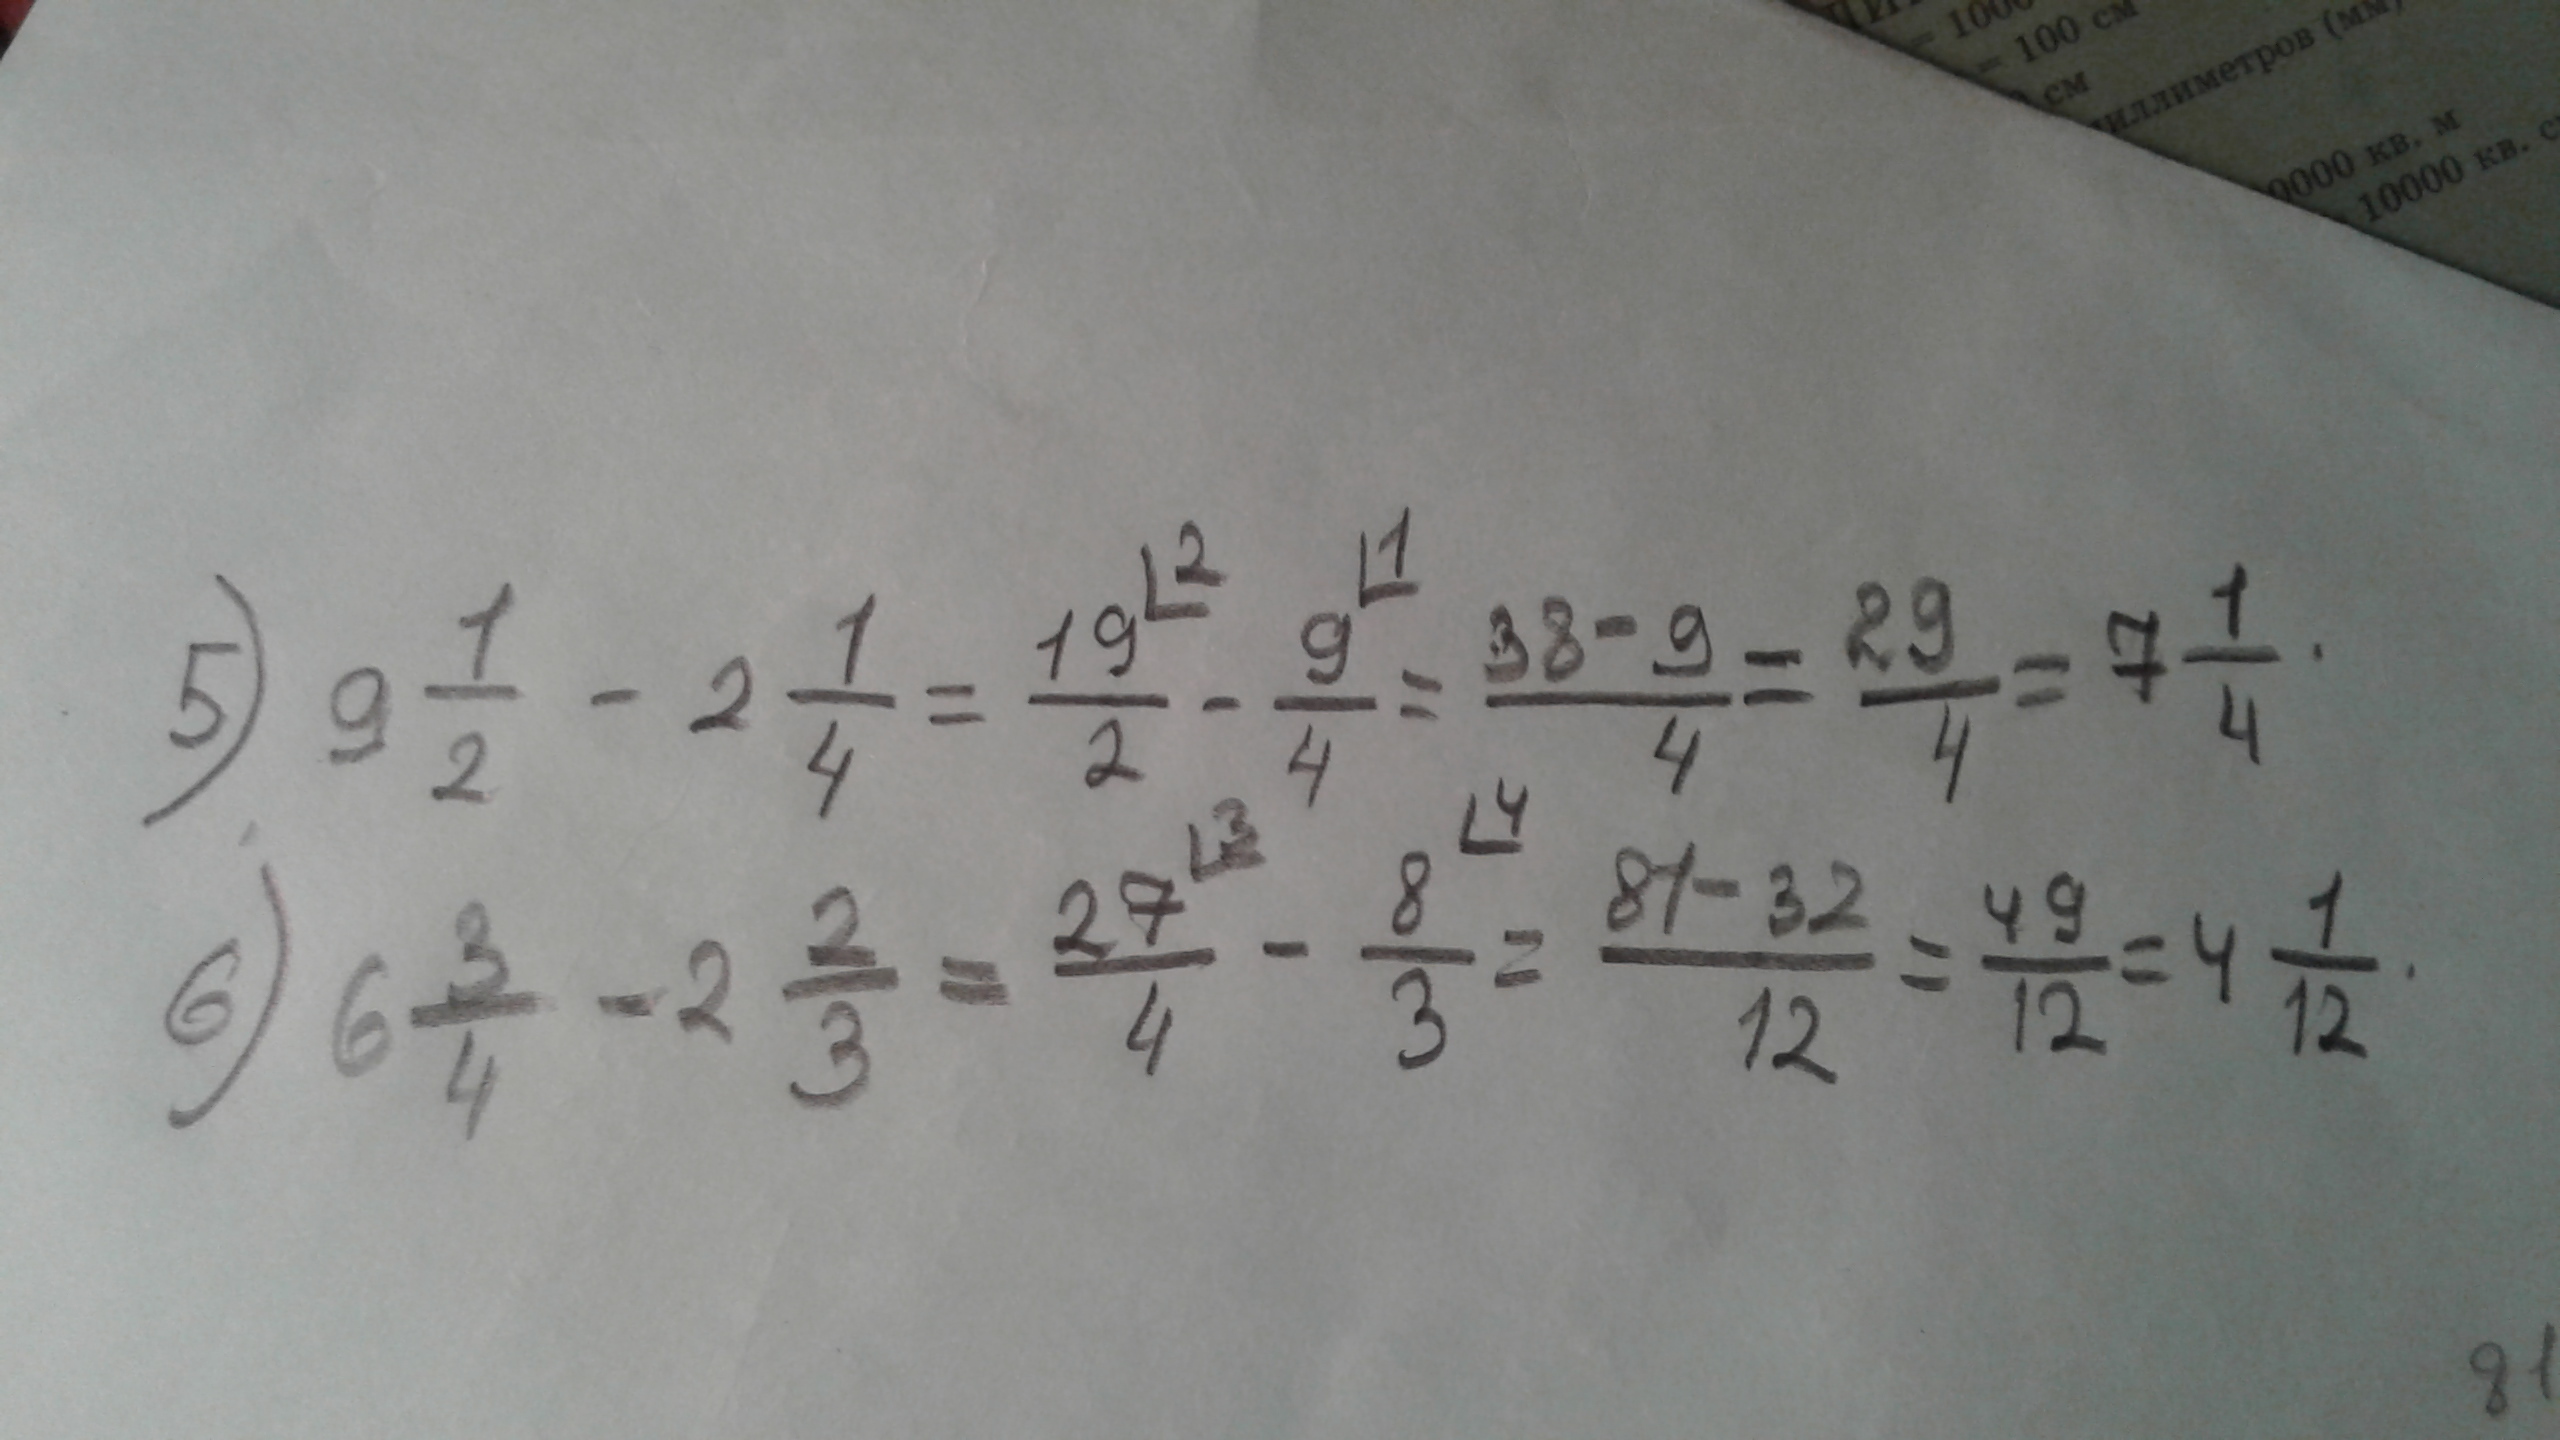 = 100 см
см
(мм)
0000 кв. м
10000 кв.
5) 9 1/2 - 2 1/4 = 19⌊2/2 - 9⌊1/4 = 38-9/4 = 29/4 = 7 1/4.
6) 6 3/4 - 2 2/3 = 27⌊3/4 - 8⌊4/3 = 81-32/12 = 49/12 = 4 1/12.
81